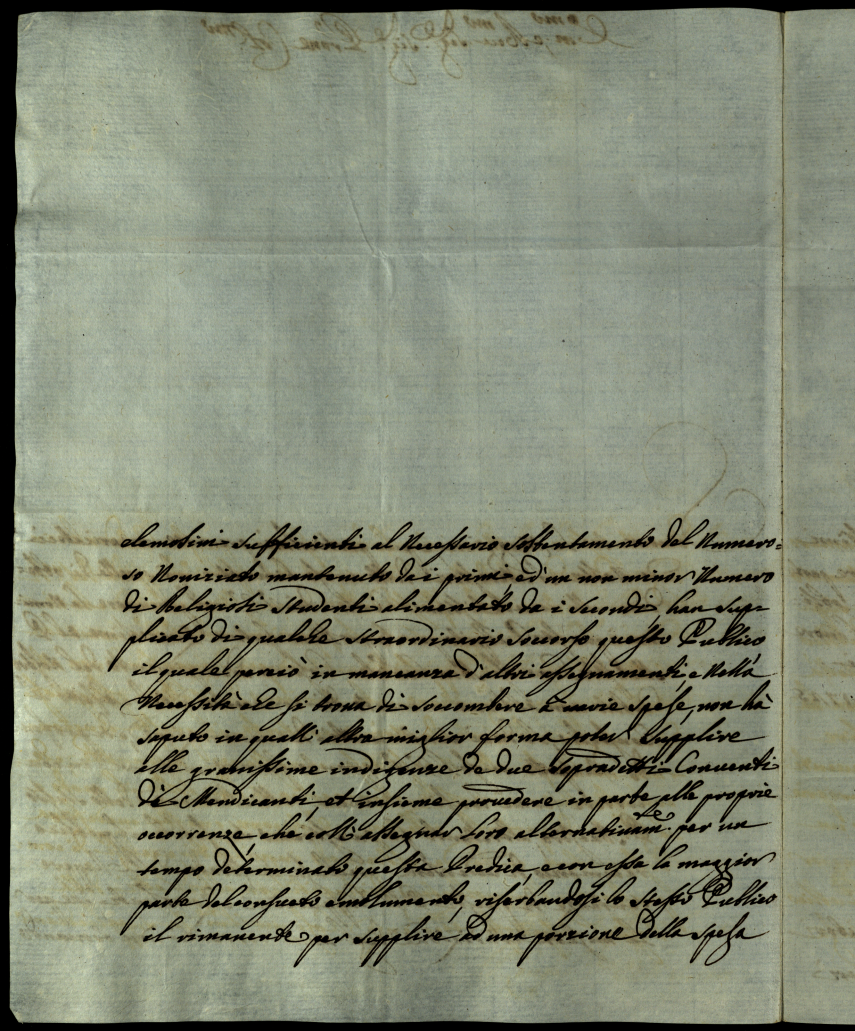 elemosini sufficienti al Necessario sostentamento del Numero=
so Noviziato mantenuto da i primi ed'un non minor Numero
di Religiosi Studenti alimentato da i secondi, han sup-
plicato di qualche straordinario soccorso questo Publico
il quale perciò in mancanza d'altri assegnamenti, e nella
Necessità che si trova di soccombere à varie spese, non hà
saputo in quall' altra miglior forma poter supplire
alle gravissime indigenze de due sopradetti Conventi
di Mendicanti, et insieme provedere in parte alle proprie
occorrenze, che coll' assegnar loro alternativam.te per un
tempo determinato questa Predica, e con essa la maggior
parte del consueto emolumento, riserbandosi lo stesso Publico
il rimanente per supplire ad una porzione della spesa